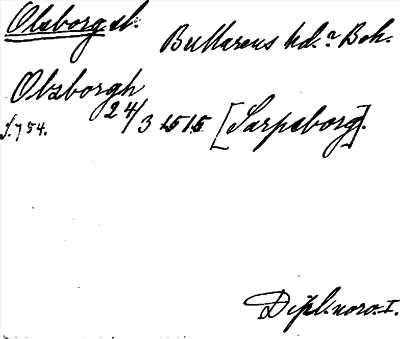 Olsborg sl.
Bullarens hd.? Boh.
Olszborgh
24/3 1515 [Sarpsborg].
s. 754.
Dipl. norv. I.